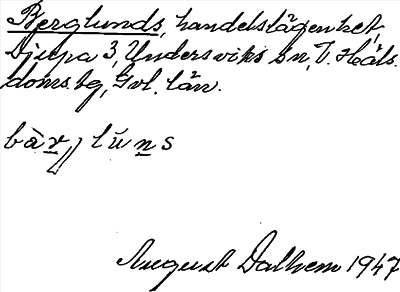 Berglunds, handelslägenhet,
Djupa 3, Undersviks sn, V. Häls.
doms. bg, Gvl. län.
bàr̲ʃlŭn̲s
August Dalhem 1947